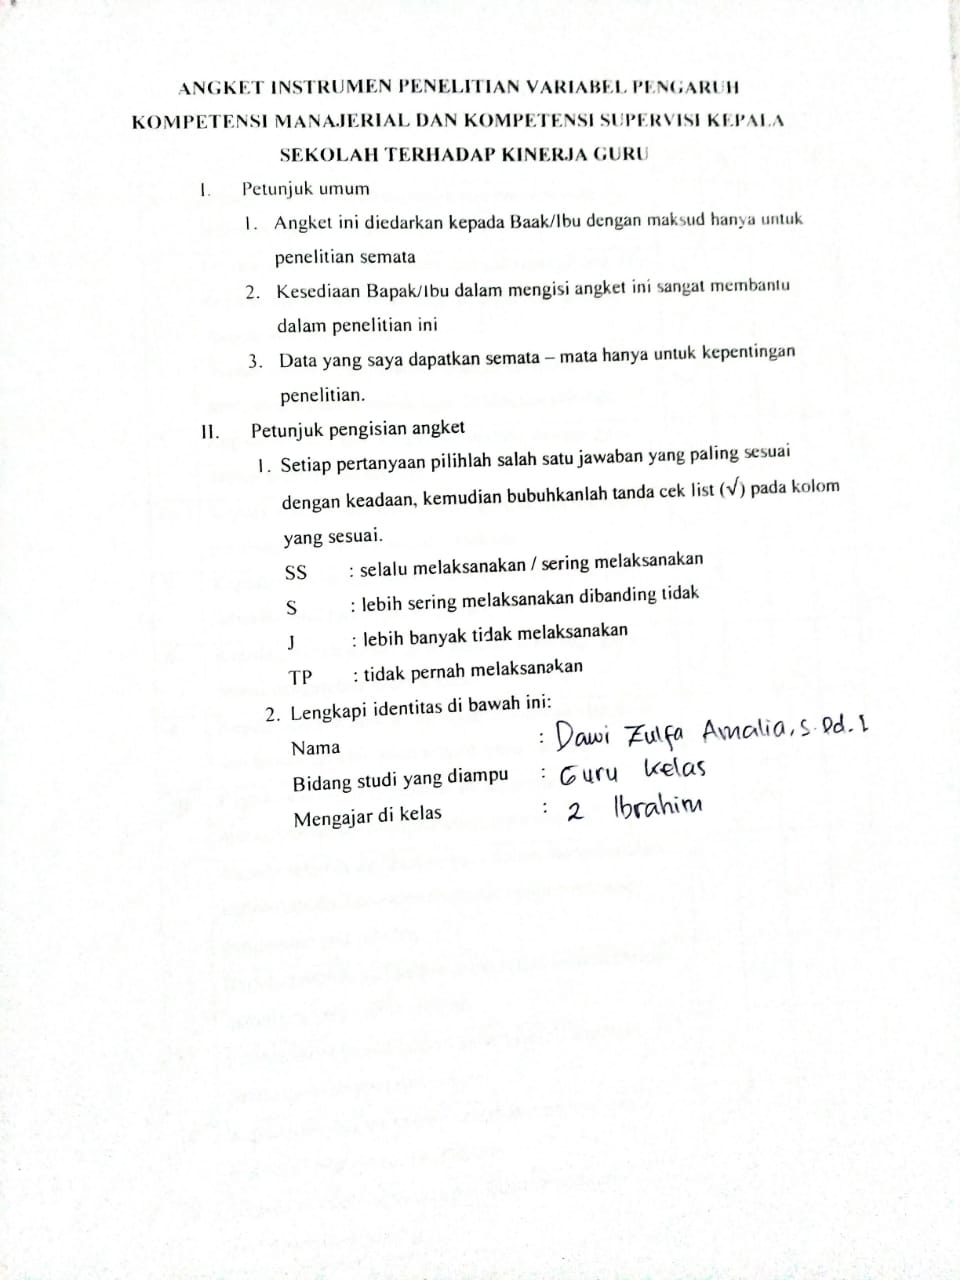 ANGKET INSTRUMEN PENELITIAN VARIABEL PENGARUH
KOMPETENSI MANAJERIAL DAN KOMPETENSI SUPERVISI KEPALA
SEKOLAH TERHADAP KINERJA GURU
I. Petunjuk umum
1. Angket ini diedarkan kepada Baak/Ibu dengan maksud hanya untuk
penelitian semata
2. Kesediaan Bapak/Ibu dalam mengisi angket ini sangat membantu
dalam penelitian ini
3. Data yang saya dapatkan semata – mata hanya untuk kepentingan
penelitian.
II. Petunjuk pengisian angket
1. Setiap pertanyaan pilihlah salah satu jawaban yang paling sesuai
dengan keadaan, kemudian bubuhkanlah tanda cek list (√) pada kolom
yang sesuai.
SS : selalu melaksanakan / sering melaksanakan
S : lebih sering melaksanakan dibanding tidak
J : lebih banyak tidak melaksanakan
TP : tidak pernah melaksanakan
2. Lengkapi identitas di bawah ini:
Nama : Dawi Zulfa Amalia, S.Pd.I
Bidang studi yang diampu : Guru Kelas
Mengajar di kelas : 2 Ibrahim